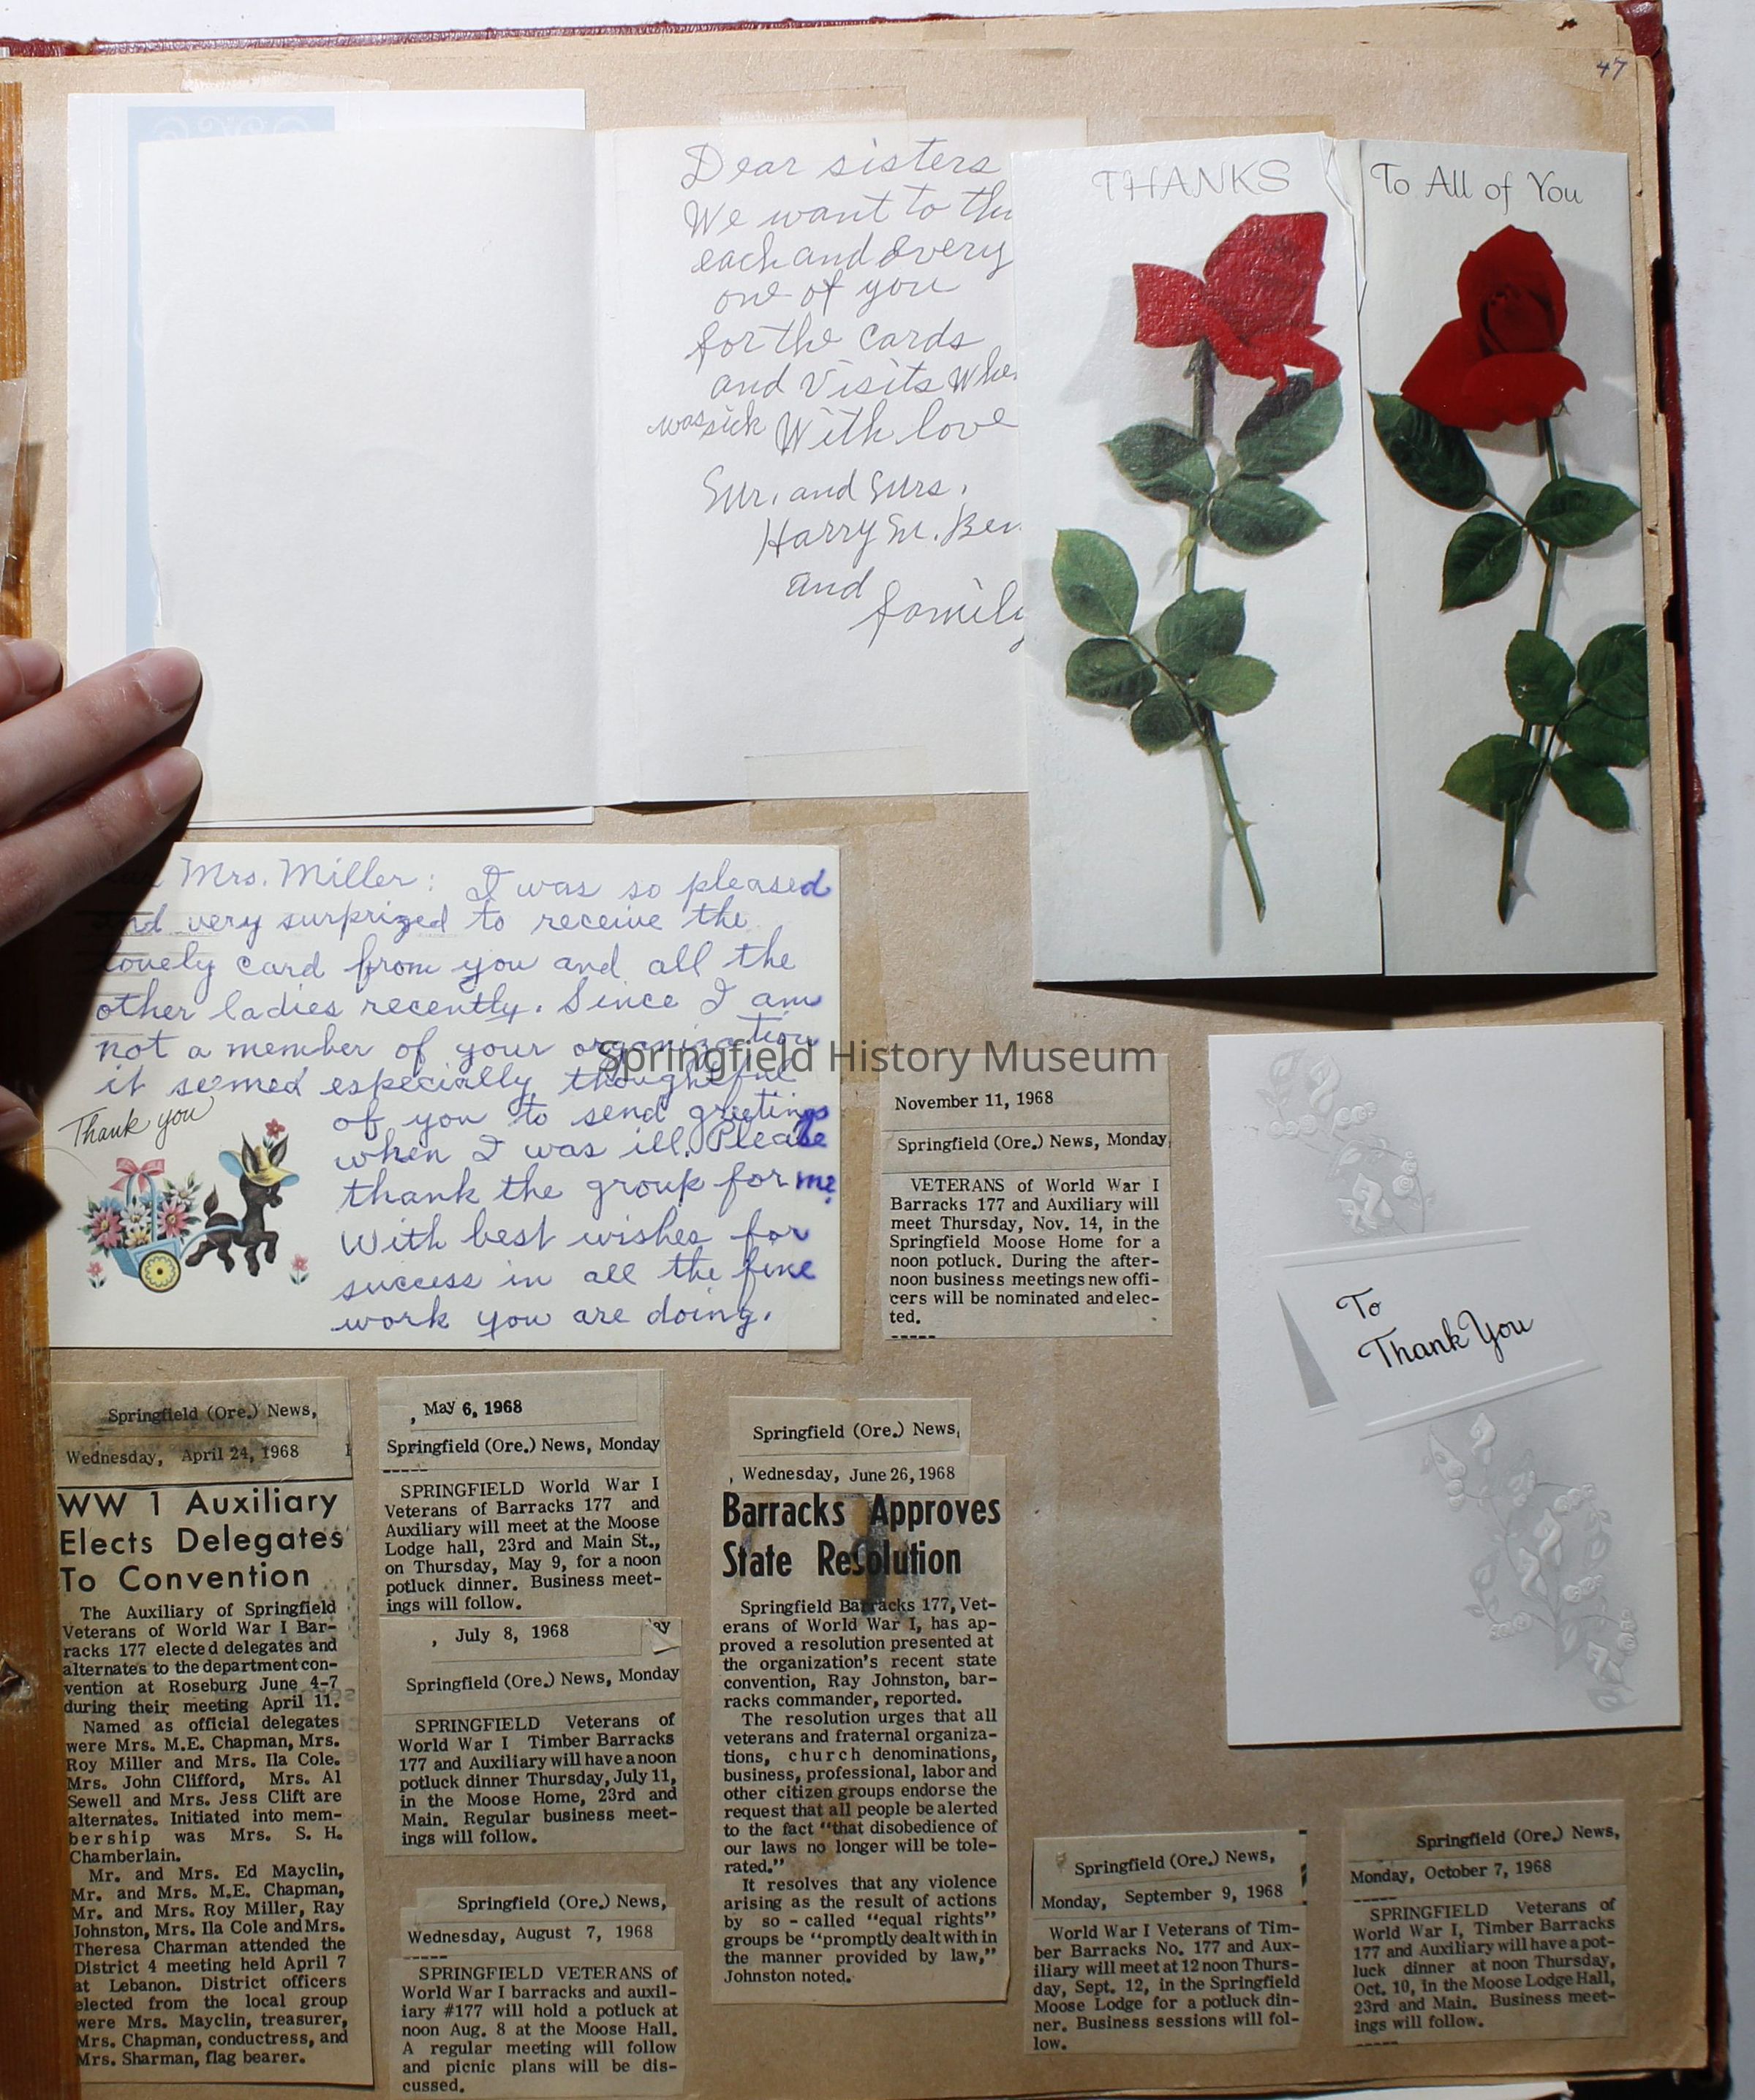 47
Dear sisters
We want to
each and every
one of you
for the cards
and visits
was sick With love
Mr. and Mrs.
Harry M.
and
family
THANKS
To All of You
Mrs. Miller: I was so pleased
and very surprized to receive the
lovely card from you and all the
other ladies recently. Since I am
not a member of your organization
it seemed especially thoughtful
of you to send greetings
when I was ill. Please
thank the group for me.
With best wishes for
success in all the fine
work you are doing.
Thank you
Springfield History Museum
November 11, 1968
Springfield (Ore.) News, Monday
VETERANS of World War I
Barracks 177 and Auxiliary will
meet Thursday, Nov. 14, in the
Springfield Moose Home for a
noon potluck. During the after-
noon business meetings new offi-
cers will be nominated and elec-
ted.
To
Thank You
Springfield (Ore.) News,
Wednesday, April 24, 1968
WW 1 Auxiliary
Elects Delegates
To Convention
The Auxiliary of Springfield
Veterans of World War I Bar-
racks 177 elected delegates and
alternates to the department con-
vention at Roseburg June 4-7
during their meeting April 11.
Named as official delegates
were Mrs. M.E. Chapman, Mrs.
Roy Miller and Mrs. Ila Cole.
Mrs. John Clifford, Mrs. Al
Sewell and Mrs. Jess Clift are
alternates. Initiated into mem-
bership was Mrs. S. H.
Chamberlain.
Mr. and Mrs. Ed Mayclin,
Mr. and Mrs. M.E. Chapman,
Mr. and Mrs. Roy Miller, Ray
Johnston, Mrs. Ila Cole and Mrs.
Theresa Charman attended the
District 4 meeting held April 7
at Lebanon. District officers
elected from the local group
were Mrs. Mayclin, treasurer,
Mrs. Chapman, conductress, and
Mrs. Sharman, flag bearer.
, May 6, 1968
Springfield (Ore.) News, Monday
SPRINGFIELD World War I
Veterans of Barracks 177 and
Auxiliary will meet at the Moose
Lodge hall, 23rd and Main St.,
on Thursday, May 9, for a noon
potluck dinner. Business meet-
ings will follow.
, July 8, 1968
Springfield (Ore.) News, Monday
SPRINGFIELD Veterans of
World War I Timber Barracks
177 and Auxiliary will have a noon
potluck dinner Thursday, July 11,
in the Moose Home, 23rd and
Main. Regular business meet-
ings will follow.
Springfield (Ore.) News,
Wednesday, August 7, 1968
SPRINGFIELD VETERANS of
World War I barracks and auxil-
iary #177 will hold a potluck at
noon Aug. 8 at the Moose Hall.
A regular meeting will follow
and picnic plans will be dis-
cussed.
Springfield (Ore.) News,
, Wednesday, June 26, 1968
Barracks Approves
State Resolution
Springfield Barracks 177, Vet-
erans of World War I, has ap-
proved a resolution presented at
the organization's recent state
convention, Ray Johnston, bar-
racks commander, reported.
The resolution urges that all
veterans and fraternal organiza-
tions, church denominations,
business, professional, labor and
other citizen groups endorse the
request that all people be alerted
to the fact "that disobedience of
our laws no longer will be tole-
rated."
It resolves that any violence
arising as the result of actions
by so - called "equal rights"
groups be "promptly dealt with in
the manner provided by law,"
Johnston noted.
Springfield (Ore.) News,
Monday, September 9, 1968
World War I Veterans of Tim-
ber Barracks No. 177 and Aux-
iliary will meet at 12 noon Thurs-
day, Sept. 12, in the Springfield
Moose Lodge for a potluck din-
ner. Business sessions will fol-
low.
Springfield (Ore.) News,
Monday, October 7, 1968
SPRINGFIELD Veterans of
World War I, Timber Barracks
177 and Auxiliary will have a pot-
luck dinner at noon Thursday,
Oct. 10, in the Moose Lodge Hall,
23rd and Main. Business meet-
ings will follow.